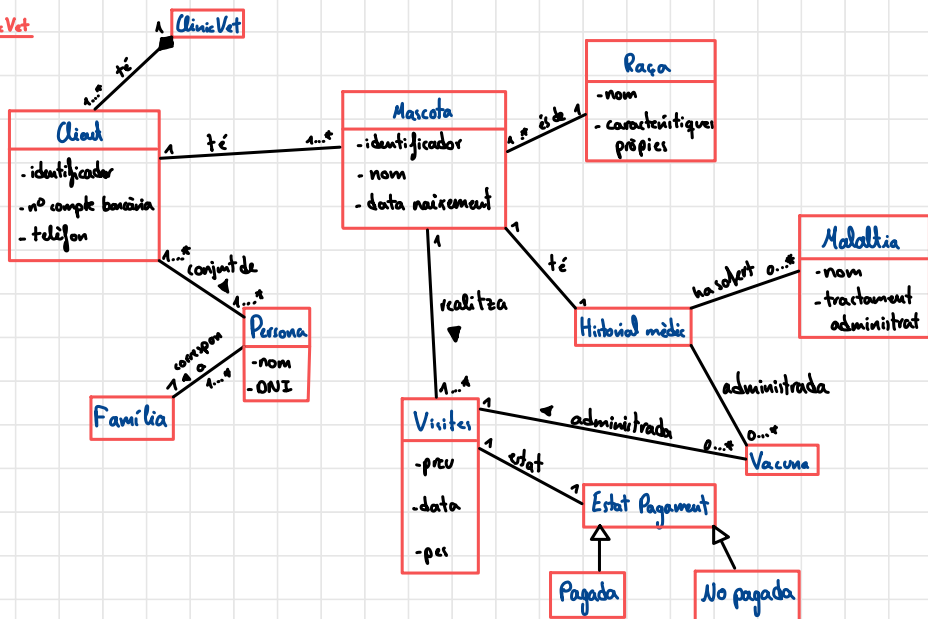 cVet
1
ClinicVet
té
1...*
Client
- identificador
- nº compte bancària
- telèfon
1
té
1...*
Mascota
- identificador
- nom
- data naixement
1..*
és de
1
Raça
- nom
- característiques
pròpies
1...*
conjunt de
1...*
Persona
- nom
- DNI
correspon
a
1
1...*
Família
1
realitza
1...*
1
té
1
Historial mèdic
ha sofert
0...*
Malaltia
- nom
- tractament
administrat
administrada
0...*
Vacuna
Visites
- preu
- data
- pes
1
administrada
0...*
1
estat
1
Estat Pagament
Pagada
No pagada